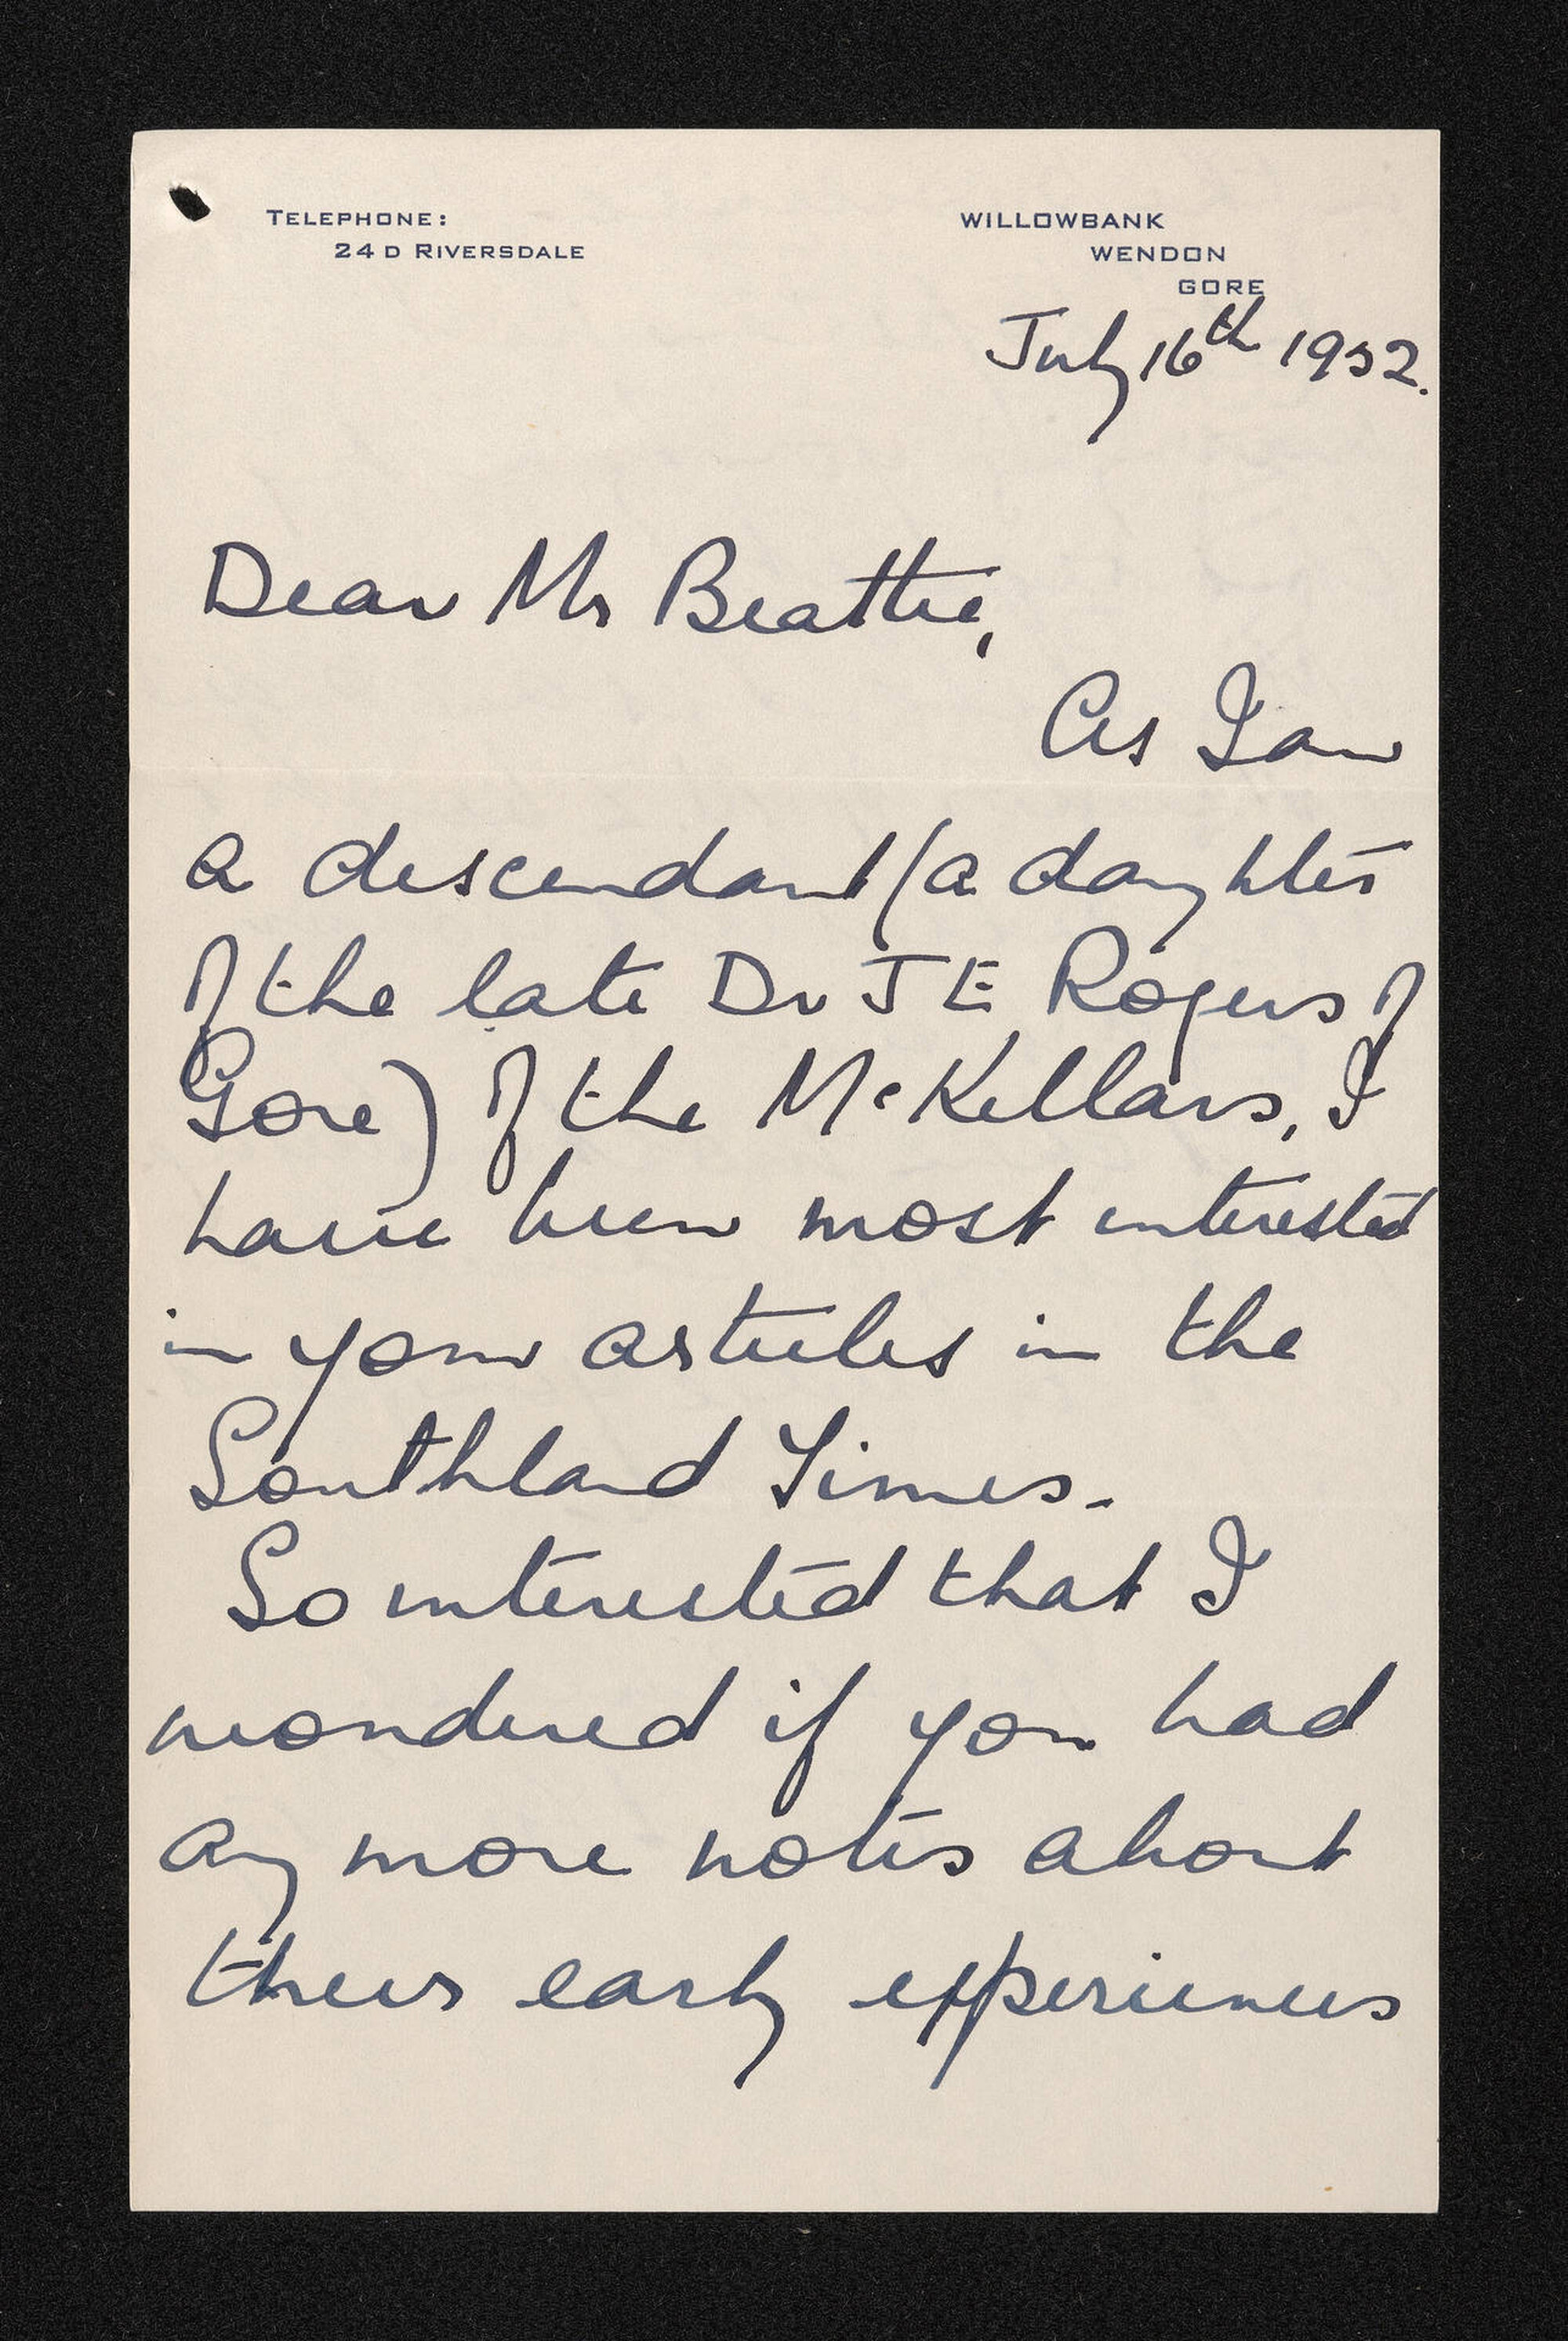 TELEPHONE:
24 D RIVERSDALE
WILLOWBANK
WENDON
GORE
July 16th 1952.
Dear Mr Beattie,
As I am
a descendant (a daughter
of the late Dr J E Rogers of
Gore) of the McKellars, I
have been most interested
in your articles in the
Southland Times.
So interested that I
wondered if you had
any more notes about
their early experiences